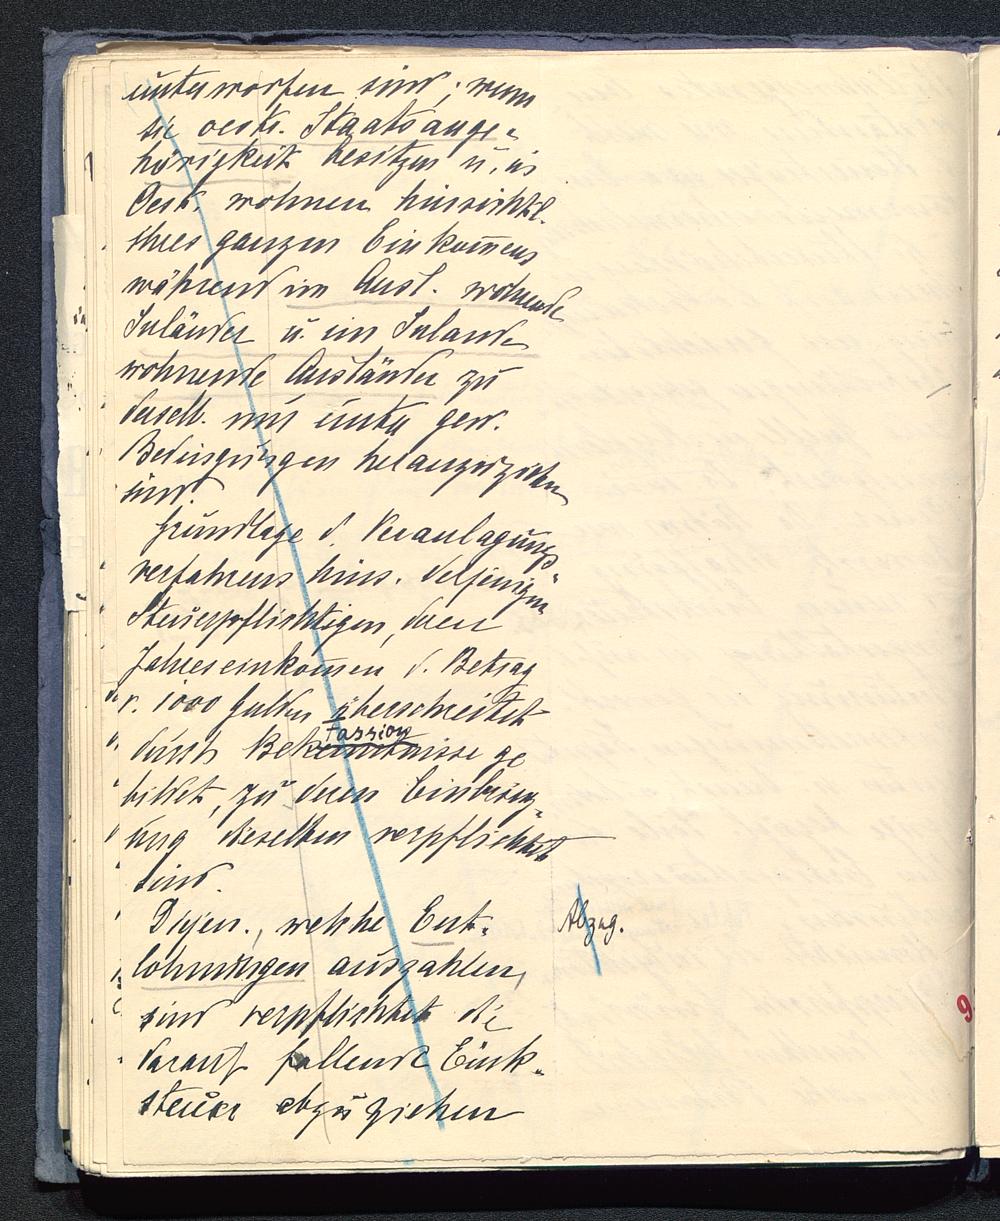 unterworfen sind; wenn
sie oestr. Staatsange-
hörigkeit besitzen u. in
Oest. wohnen hinsichtl.
ihres ganzen Einkom̄ens
während im Ausl. wohnende
Inländer u. im Inlande
wohnende Ausländer zu
derselb. nur unter gew.
Bedingungen heranzuziehen
sind.
Grundlage d. Veranlagungs-
verfahrens hins. derjenigen
Steuerpflichtigen, deren
Jahreseinkom̄en d. Betrag
v. 1000 Gulden überschreitet
Fassion
durch Bekenntnisse ge
bildet, zu deren Einbring-
ung dieselben verpflichtet
sind.
Diejen., welche Ent-
lohnungen auszahlen,
sind verpflichtet die
darauf fallende Eink-
steuer abzuziehen
Abzug.
9